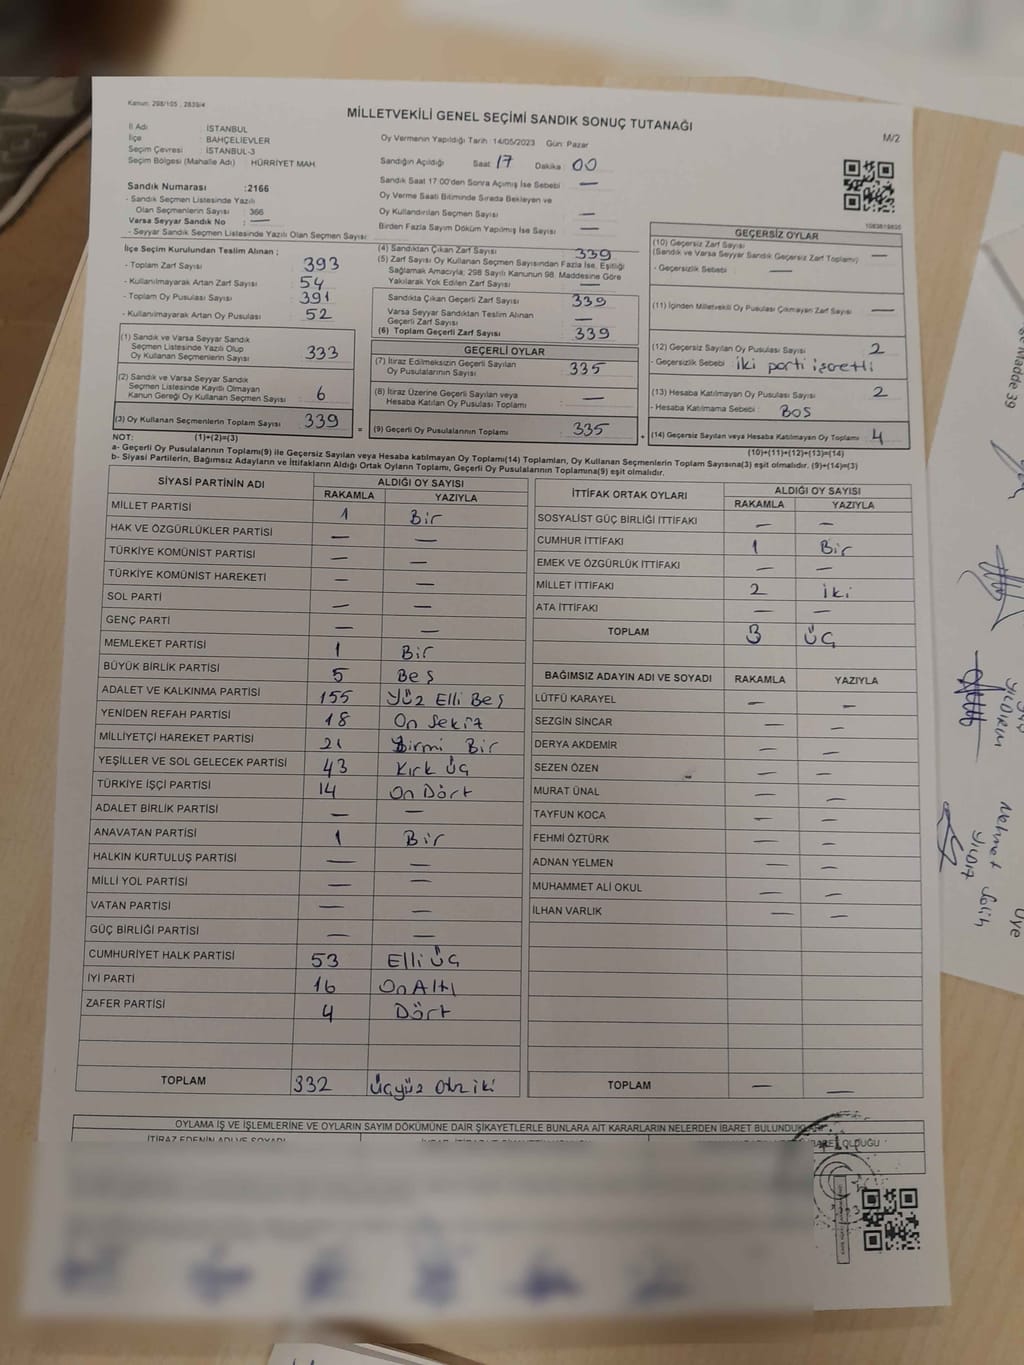 Kanun: 298/105 , 2839/4
MİLLETVEKİLİ GENEL SEÇİMİ SANDIK SONUÇ TUTANAĞI
M/2
İl Adı : İSTANBUL
İlçe : BAHÇELİEVLER
Seçim Çevresi : İSTANBUL-3
Seçim Bölgesi (Mahalle Adı) : HÜRRİYET MAH.
Sandık Numarası :2166
- Sandık Seçmen Listesinde Yazılı
Olan Seçmenlerin Sayısı : 366
Varsa Seyyar Sandık No : —
- Seyyar Sandık Seçmen Listesinde Yazılı Olan Seçmen Sayısı:
Oy Vermenin Yapıldığı Tarih :14/05/2023 Gün: Pazar
Sandığın Açıldığı Saat 17 Dakika : 00
Sandık Saat 17:00'den Sonra Açılmış İse Sebebi : —
Oy Verme Saati Bitiminde Sırada Bekleyen ve
Oy Kullandırılan Seçmen Sayısı : —
Birden Fazla Sayım Döküm Yapılmış İse Sayısı : —
İlçe Seçim Kurulundan Teslim Alınan ;
- Toplam Zarf Sayısı : 393
- Kullanılmayarak Artan Zarf Sayısı : 54
- Toplam Oy Pusulası Sayısı : 391
- Kullanılmayarak Artan Oy Pusulası : 52
(1) Sandık ve Varsa Seyyar Sandık
Seçmen Listesinde Yazılı Olup
Oy Kullanan Seçmenlerin Sayısı : 333
(2) Sandık ve Varsa Seyyar Sandık
Seçmen Listesinde Kayıtlı Olmayan
Kanun Gereği Oy Kullanan Seçmen Sayısı : 6
(3) Oy Kullanan Seçmenlerin Toplam Sayısı : 339
(4) Sandıktan Çıkan Zarf Sayısı : 339
(5) Zarf Sayısı Oy Kullanan Seçmen Sayısından Fazla İse, Eşitliği
Sağlamak Amacıyla; 298 Sayılı Kanunun 98. Maddesine Göre
Yakılarak Yok Edilen Zarf Sayısı : —
Sandıkta Çıkan Geçerli Zarf Sayısı : 339
Varsa Seyyar Sandıktan Teslim Alınan
Geçerli Zarf Sayısı : —
(6) Toplam Geçerli Zarf Sayısı : 339
GEÇERLİ OYLAR
(7) İtiraz Edilmeksizin Geçerli Sayılan
Oy Pusulalarının Sayısı : 335
(8) İtiraz Üzerine Geçerli Sayılan veya
Hesaba Katılan Oy Pusulası Toplamı : —
= (9) Geçerli Oy Pusulalarının Toplamı : 335
GEÇERSİZ OYLAR
(10) Geçersiz Zarf Sayısı
(Sandık ve Varsa Seyyar Sandık Geçersiz Zarf Toplamı) : —
- Geçersizlik Sebebi : —
(11) İçinden Milletvekili Oy Pusulası Çıkmayan Zarf Sayısı : —
(12) Geçersiz Sayılan Oy Pusulası Sayısı : 2
- Geçersizlik Sebebi : iki parti işaretli
(13) Hesaba Katılmayan Oy Pusulası Sayısı : 2
- Hesaba Katılmama Sebebi : BOŞ
+ (14) Geçersiz Sayılan veya Hesaba Katılmayan Oy Toplamı : 4
NOT: (1)+(2)=(3) (10)+(11)+(12)+(13)=(14)
a- Geçerli Oy Pusulalarının Toplamı(9) ile Geçersiz Sayılan veya Hesaba katılmayan Oy Toplamı(14) Toplamları, Oy Kullanan Seçmenlerin Toplam Sayısına(3) eşit olmalıdır. (9)+(14)=(3)
b- Siyasi Partilerin, Bağımsız Adayların ve İttifakların Aldığı Ortak Oyların Toplamı, Geçerli Oy Pusulalarının Toplamına(9) eşit olmalıdır.
SİYASİ PARTİNİN ADI ALDIĞI OY SAYISI
RAKAMLA YAZIYLA
MİLLET PARTİSİ 1 Bir
HAK VE ÖZGÜRLÜKLER PARTİSİ — —
TÜRKİYE KOMÜNİST PARTİSİ — —
TÜRKİYE KOMÜNİST HAREKETİ — —
SOL PARTİ — —
GENÇ PARTİ — —
MEMLEKET PARTİSİ 1 Bir
BÜYÜK BİRLİK PARTİSİ 5 Beş
ADALET VE KALKINMA PARTİSİ 155 Yüz Elli Beş
YENİDEN REFAH PARTİSİ 18 On Sekiz
MİLLİYETÇİ HAREKET PARTİSİ 21 Yirmi Bir
YEŞİLLER VE SOL GELECEK PARTİSİ 43 Kırk Üç
TÜRKİYE İŞÇİ PARTİSİ 14 On Dört
ADALET BİRLİK PARTİSİ — —
ANAVATAN PARTİSİ 1 Bir
HALKIN KURTULUŞ PARTİSİ — —
MİLLİ YOL PARTİSİ — —
VATAN PARTİSİ — —
GÜÇ BİRLİĞİ PARTİSİ — —
CUMHURİYET HALK PARTİSİ 53 Elli Üç
İYİ PARTİ 16 On Altı
ZAFER PARTİSİ 4 Dört
TOPLAM 332 Üçyüz Otuz iki
İTTİFAK ORTAK OYLARI ALDIĞI OY SAYISI
RAKAMLA YAZIYLA
SOSYALİST GÜÇ BİRLİĞİ İTTİFAKI — —
CUMHUR İTTİFAKI 1 Bir
EMEK VE ÖZGÜRLÜK İTTİFAKI — —
MİLLET İTTİFAKI 2 İki
ATA İTTİFAKI — —
TOPLAM 3 Üç
BAĞIMSIZ ADAYIN ADI VE SOYADI RAKAMLA YAZIYLA
LÜTFÜ KARAYEL — —
SEZGİN SİNCAR — —
DERYA AKDEMİR — —
SEZEN ÖZEN — —
MURAT ÜNAL — —
TAYFUN KOCA — —
FEHMİ ÖZTÜRK — —
ADNAN YELMEN — —
MUHAMMET ALİ OKUL — —
İLHAN VARLIK — —
TOPLAM — —
OYLAMA İŞ VE İŞLEMLERİNE VE OYLARIN SAYIM DÖKÜMÜNE DAİR ŞİKAYETLERLE BUNLARA AİT KARARLARIN NELERDEN İBARET BULUNDUĞU
İTİRAZ EDENİN ADI VE SOYADI
İBARET OLDUĞU
Madde 39
YILDIRIM
Mehmet Salih
YILDIZ
Üye